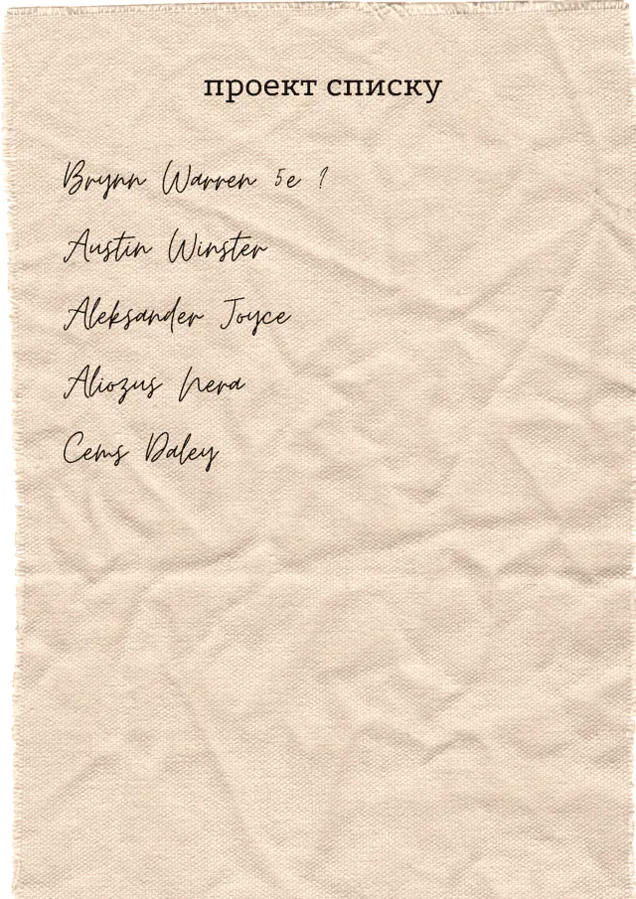 проект списку
Brynn Warren 5e ?
Austin Winster
Aleksander Joyce
Aliozus Nera
Cems Daley